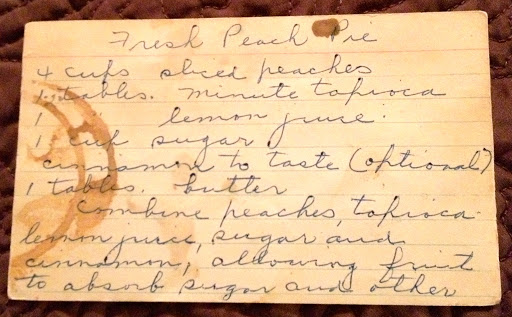 Fresh Peach Pie
4 cups sliced peaches
tables. minute tapioca
1 lemon juice.
1 cup sugar
cinnamon to taste (optional)
1 tables. butter
Combine peaches, tapioca
lemon juice, sugar and
cinnamon, allowing fruit
to absorb sugar and other